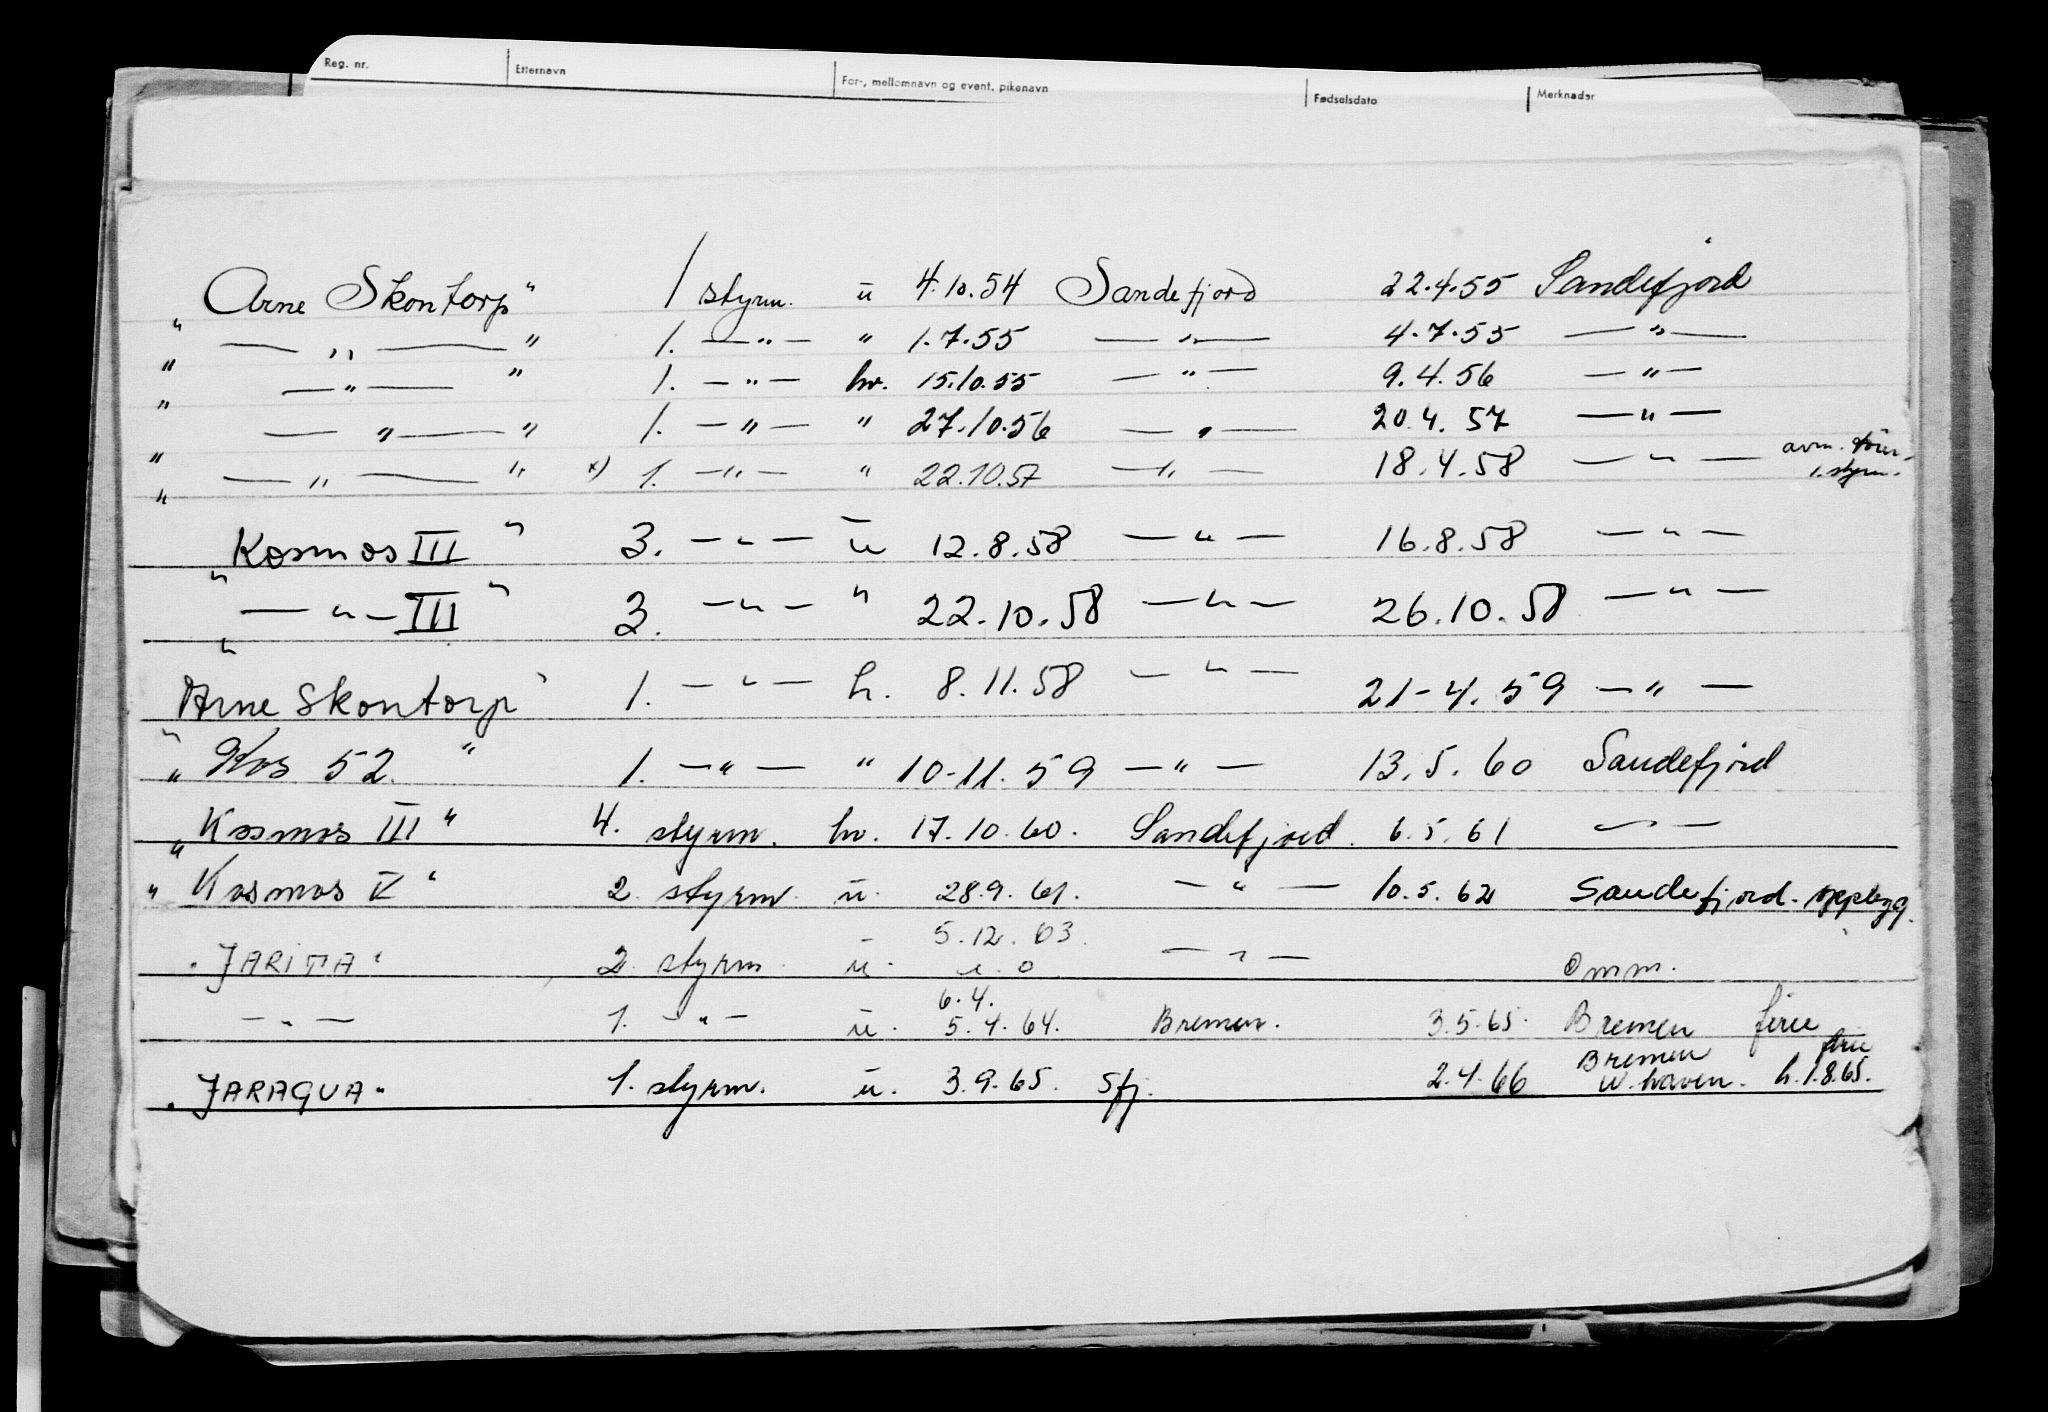 Reg. nr. Etternavn For-, mellomnavn og event. pikenavn Fødselsdato Merknader
Arne Skontorp" 1 styrm. u 4.10.54 Sandefjord 22.4.55 Sandefjord
" — " — " 1. — " — " 1.7.55 — " — 4.7.55 — " —
" — " — " 1. — " — hv. 15.10.55 — " — 9.4.56 — " —
" — " — " 1. — " — " 27.10.56 — " — 20.4.57 — " —
" — " — " x) 1. — " — " 22.10.57 — " — 18.4.58 — " — avm.
1. styrm.
" Kosmos III " 3. — " — u 12.8.58 — " — 16.8.58 — " —
" — " — III " 3. — " — " 22.10.58 — " — 26.10.58 — " —
" Arne Skontorp " 1. — " — h. 8.11.58 — " — 21-4.59 — " —
" Kos 52. " 1. — " — " 10-11.59 — " — 13.5.60 Sandefjord
" Kosmos III " 4. styrm. hv. 17.10.60. Sandefjord. 6.5.61 — " —
" Kosmos V " 2. styrm. u. 28.9.61. — " — 10.5.62 Sandefjord. opplegg.
5.12.63.
" JARITA " 2. styrm. u. — " — Omm.
6.4.
— " — 1. — " — u. 5.4.64. Bremen. 3.5.65. Bremen ferie
Bremen ferie
" JARAGUA " 1. styrm. u. 3.9.65. Sfj. 2.4.66 W.haven. h. 1.8.65.